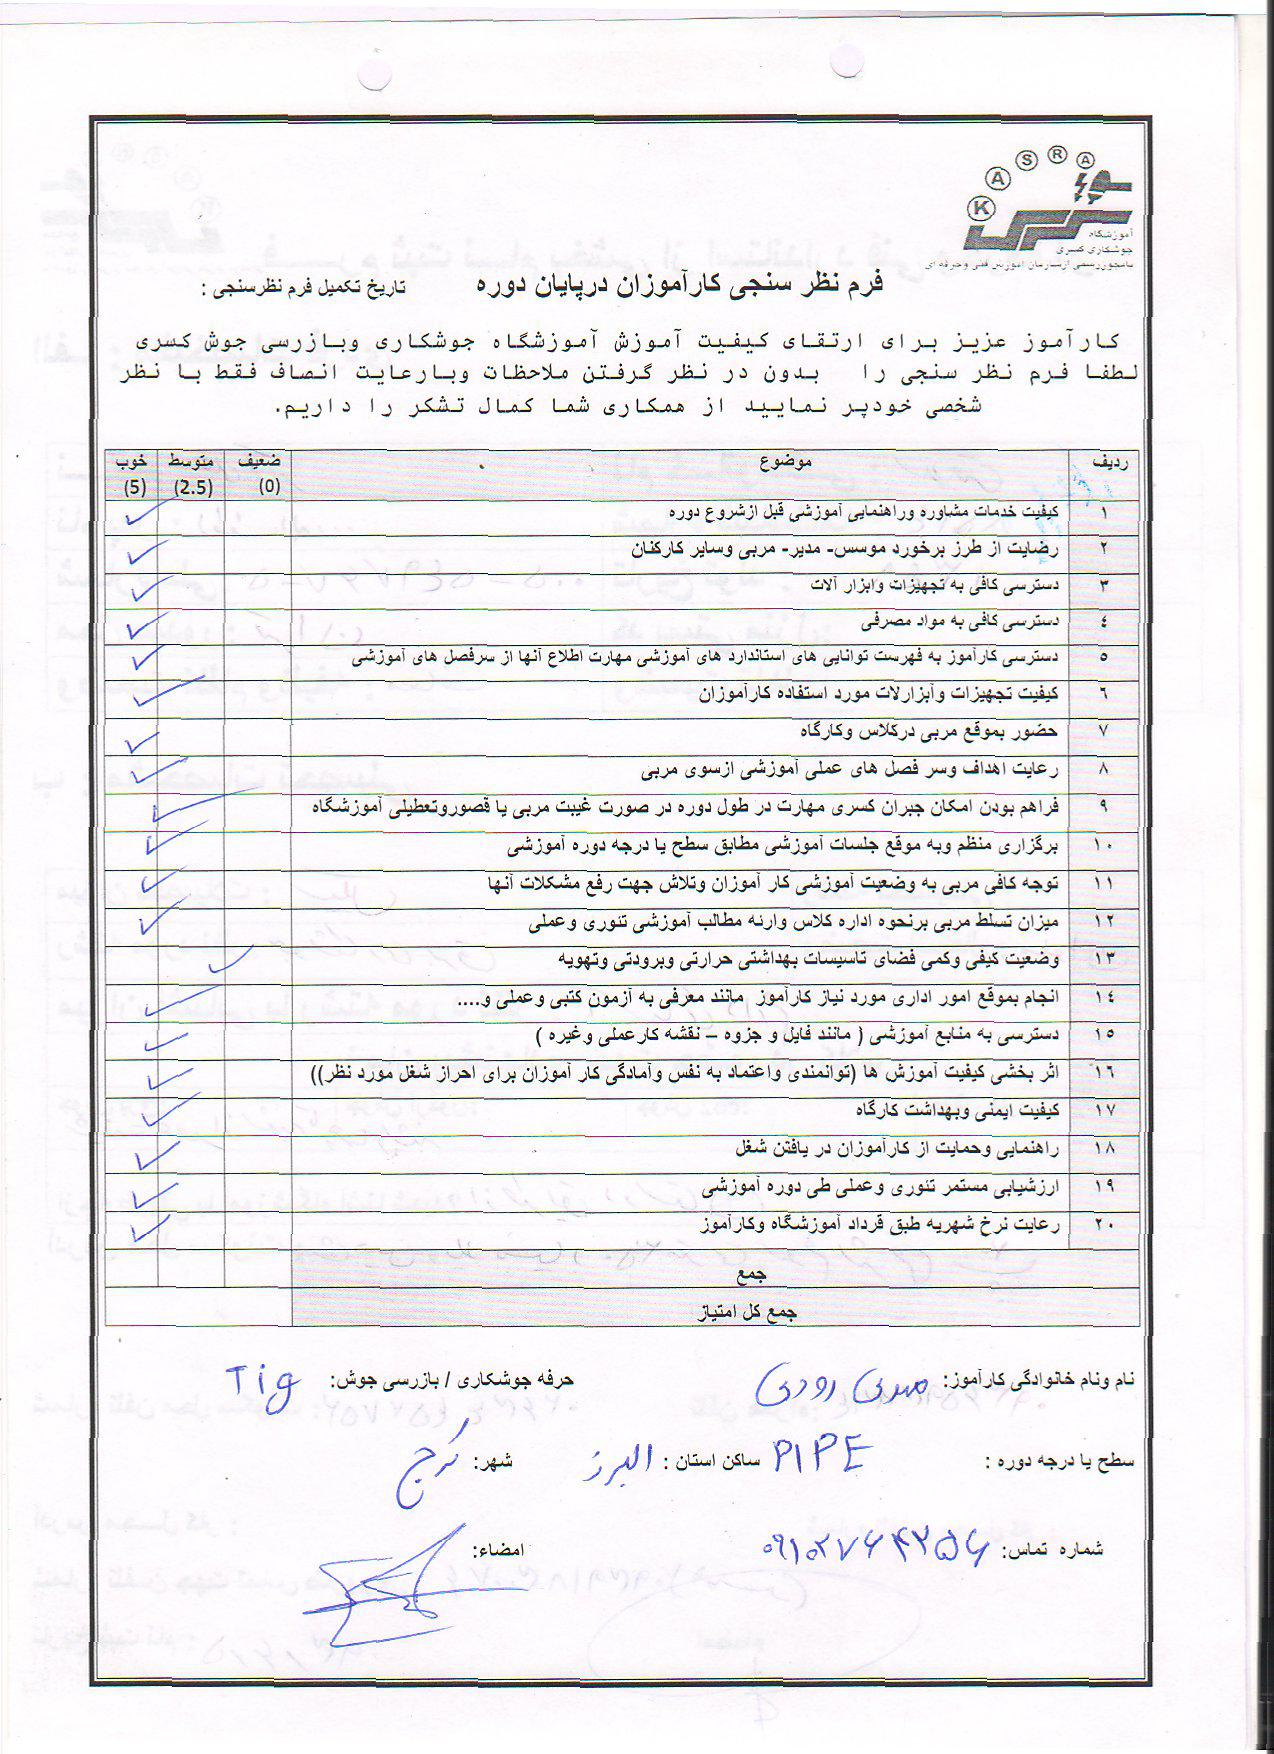 K A S R A
آموزشگاه
جوشکاری کسری
فرم نظر سنجی کارآموزان درپایان دوره تاریخ تکمیل فرم نظرسنجی :
کارآموز عزیز برای ارتقای کیفیت آموزش آموزشگاه جوشکاری وبازرسی جوش کسری
لطفا فرم نظر سنجی را بدون در نظر گرفتن ملاحظات وبارعایت انصاف فقط با نظر
شخصی خودپر نمایید از همکاری شما کمال تشکر را داریم.
ردیف موضوع ضعیف (0) متوسط (2.5) خوب (5)
۱ کیفیت خدمات مشاوره وراهنمایی آموزشی قبل ازشروع دوره ✓
۲ رضایت از طرز برخورد موسس- مدیر- مربی وسایر کارکنان ✓
۳ دسترسی کافی به تجهیزات وابزار آلات ✓
٤ دسترسی کافی به مواد مصرفی ✓
٥ دسترسی کارآموز به فهرست توانایی های استاندارد های آموزشی مهارت اطلاع آنها از سرفصل های آموزشی ✓
٦ کیفیت تجهیزات وآبزارلات مورد استفاده کارآموزان ✓
۷ حضور بموقع مربی درکلاس وکارگاه ✓
۸ رعایت اهداف وسر فصل های عملی آموزشی ازسوی مربی ✓
۹ فراهم بودن امکان جبران کسری مهارت در طول دوره در صورت غیبت مربی یا قصوروتعطیلی آموزشگاه ✓
۱۰ برگزاری منظم وبه موقع جلسات آموزشی مطابق سطح یا درجه دوره آموزشی ✓
۱۱ توجه کافی مربی به وضعیت آموزشی کار آموزان وتلاش جهت رفع مشکلات آنها ✓
۱۲ میزان تسلط مربی برنحوه اداره کلاس وارئه مطالب آموزشی تئوری وعملی ✓
۱۳ وضعیت کیفی وکمی فضای تاسیسات بهداشتی حرارتی وبرودتی وتهویه ✓
۱٤ انجام بموقع امور اداری مورد نیاز کارآموز مانند معرفی به آزمون کتبی وعملی و.... ✓
۱٥ دسترسی به منابع آموزشی ( مانند فایل و جزوه – نقشه کارعملی وغیره ) ✓
۱٦ اثر بخشی کیفیت آموزش ها (توانمندی واعتماد به نفس وآمادگی کار آموزان برای احراز شغل مورد نظر)) ✓
۱۷ کیفیت ایمنی وبهداشت کارگاه ✓
۱۸ راهنمایی وحمایت از کارآموزان در یافتن شغل ✓
۱۹ ارزشیابی مستمر تئوری وعملی طی دوره آموزشی ✓
۲۰ رعایت نرخ شهریه طبق قرداد آموزشگاه وکارآموز ✓
جمع
جمع کل امتیاز
نام ونام خانوادگی کارآموز: مهدی رودی حرفه جوشکاری / بازرسی جوش: Tig
سطح یا درجه دوره : PIPE ساکن استان : البرز شهر: کرج
شماره تماس: ۰۹۱۰۲۷۶۴۲۵۶ امضاء: